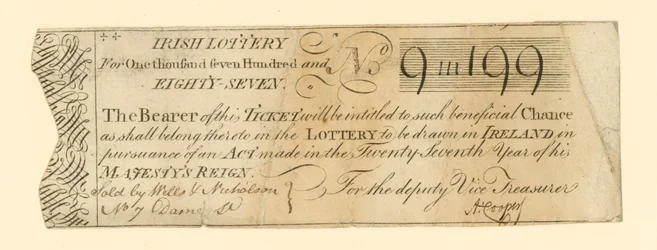 IRISH LOTTERY
For One thousand seven Hundred and
EIGHTY-SEVEN.
No. 9 m 199
The Bearer of this TICKET will be intitled to such beneficial Chance
as shall belong thereto in the LOTTERY to be drawn in IRELAND in
pursuance of an ACT made in the Twenty-Seventh Year of his
MAJESTY'S REIGN.
Sold by Wills & Nicholson
No 7 Dame St
For the deputy Vice Treasurer
A. Cooper